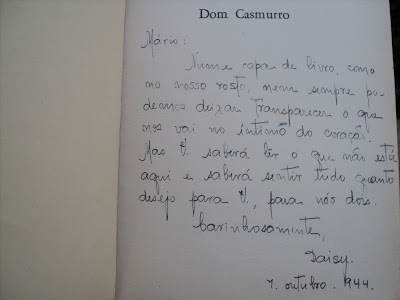 Dom Casmurro
Mário:
Numa capa de livro, como
no nosso rosto, nem sempre po-
demos deixar transparecer o que
nos vai no íntimo do coração.
Mas V. saberá lêr o que não está
aqui e saberá sentir tudo quanto
desejo para V., para nós dois.
Carinhosamente,
Daisy.
7. outubro. 944.